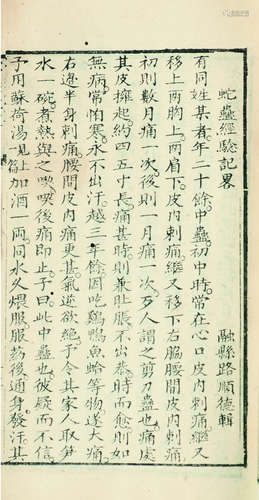 蛇蠱經驗記畧 融縣路順德輯
有同姓某者年二十餘中蠱初中時常在心口皮內刺痛繼又
移上兩胸上兩肩下皮內刺痛繼又移下右脇腰間皮內刺痛
初則數月痛一次後則一月痛一次歹人謂之剪刀蠱也痛處
其皮擁起約四五寸長痛甚時則兼肚脹不出恭時而愈則如
無病常怕寒水不出汗越三年餘因吃鷄鴨魚蛤等物遂大痛
右邊半身刺痛腰間皮內痛更甚氣逆欲絕予令其家人取笋
水一碗煮熱與之喫喫後痛即止予曰此中蠱也彼疑而不信
予用蘇荷湯見後加酒一兩同水久煨服服葯後通身發汗其